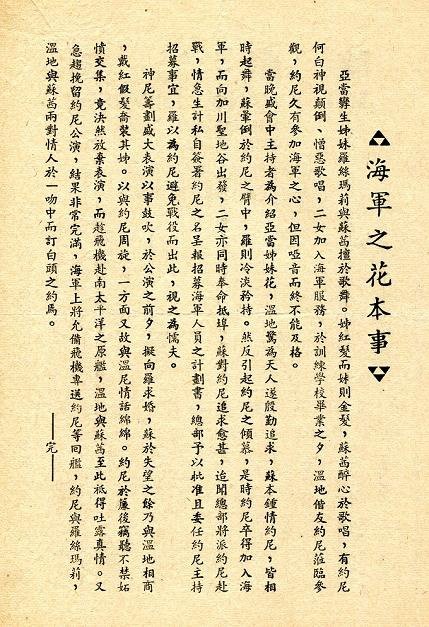 ▲海軍之花本事▼
亞當孿生姊妹羅絲瑪莉與蘇茜擅於歌舞。姊紅髮而妹則金髮，蘇茜醉心於歌唱，有約尼
何白神視顛倒、憎惡歌唱，二女加入海軍服務，於訓練學校畢業之夕，溫地偕友約尼蒞臨參
觀，約尼久有參加海軍之心，但因啞音而終不能及格。
當晚盛會中主持者為介紹亞當姊妹花，溫地驚為天人遂殷勤追求，蘇本鍾情約尼，皆相
時起舞，蘇暈倒於約尼之臂中，羅則冷淡矜持。然反引起約尼之傾慕，是時約尼卒得加入海
軍，而向加川聖地谷出發，二女亦同時奉命抵埠，蘇對約尼追求愈甚，迨聞總部將派約尼赴
戰，情急生計私自簽署約尼之名呈報招募海軍人員之計劃書，總部予以批准且委任約尼主持
招募事宜，羅以為約尼避免戰役而出此，視之為懦夫。
神尼籌劃盛大表演以事鼓吹，於公演之前夕，擬向羅求婚，蘇於失望之餘乃與溫地相商
，戴紅假髮喬裝其姊。以與約尼周旋，一方面又故與溫尼情話綿綿。約尼於簾後竊聽不禁妬
憤交集，竟決然放棄表演，而趁飛機赴南太平洋之原艦，溫地與蘇茜至此祗得吐露真情。又
急趨挽留約尼公演，結果非常完滿，海軍上將允備飛機專送約尼等回艦，約尼與羅絲瑪莉，
溫地與蘇茜兩對情人於一吻中而訂白頭之約焉。
——完——